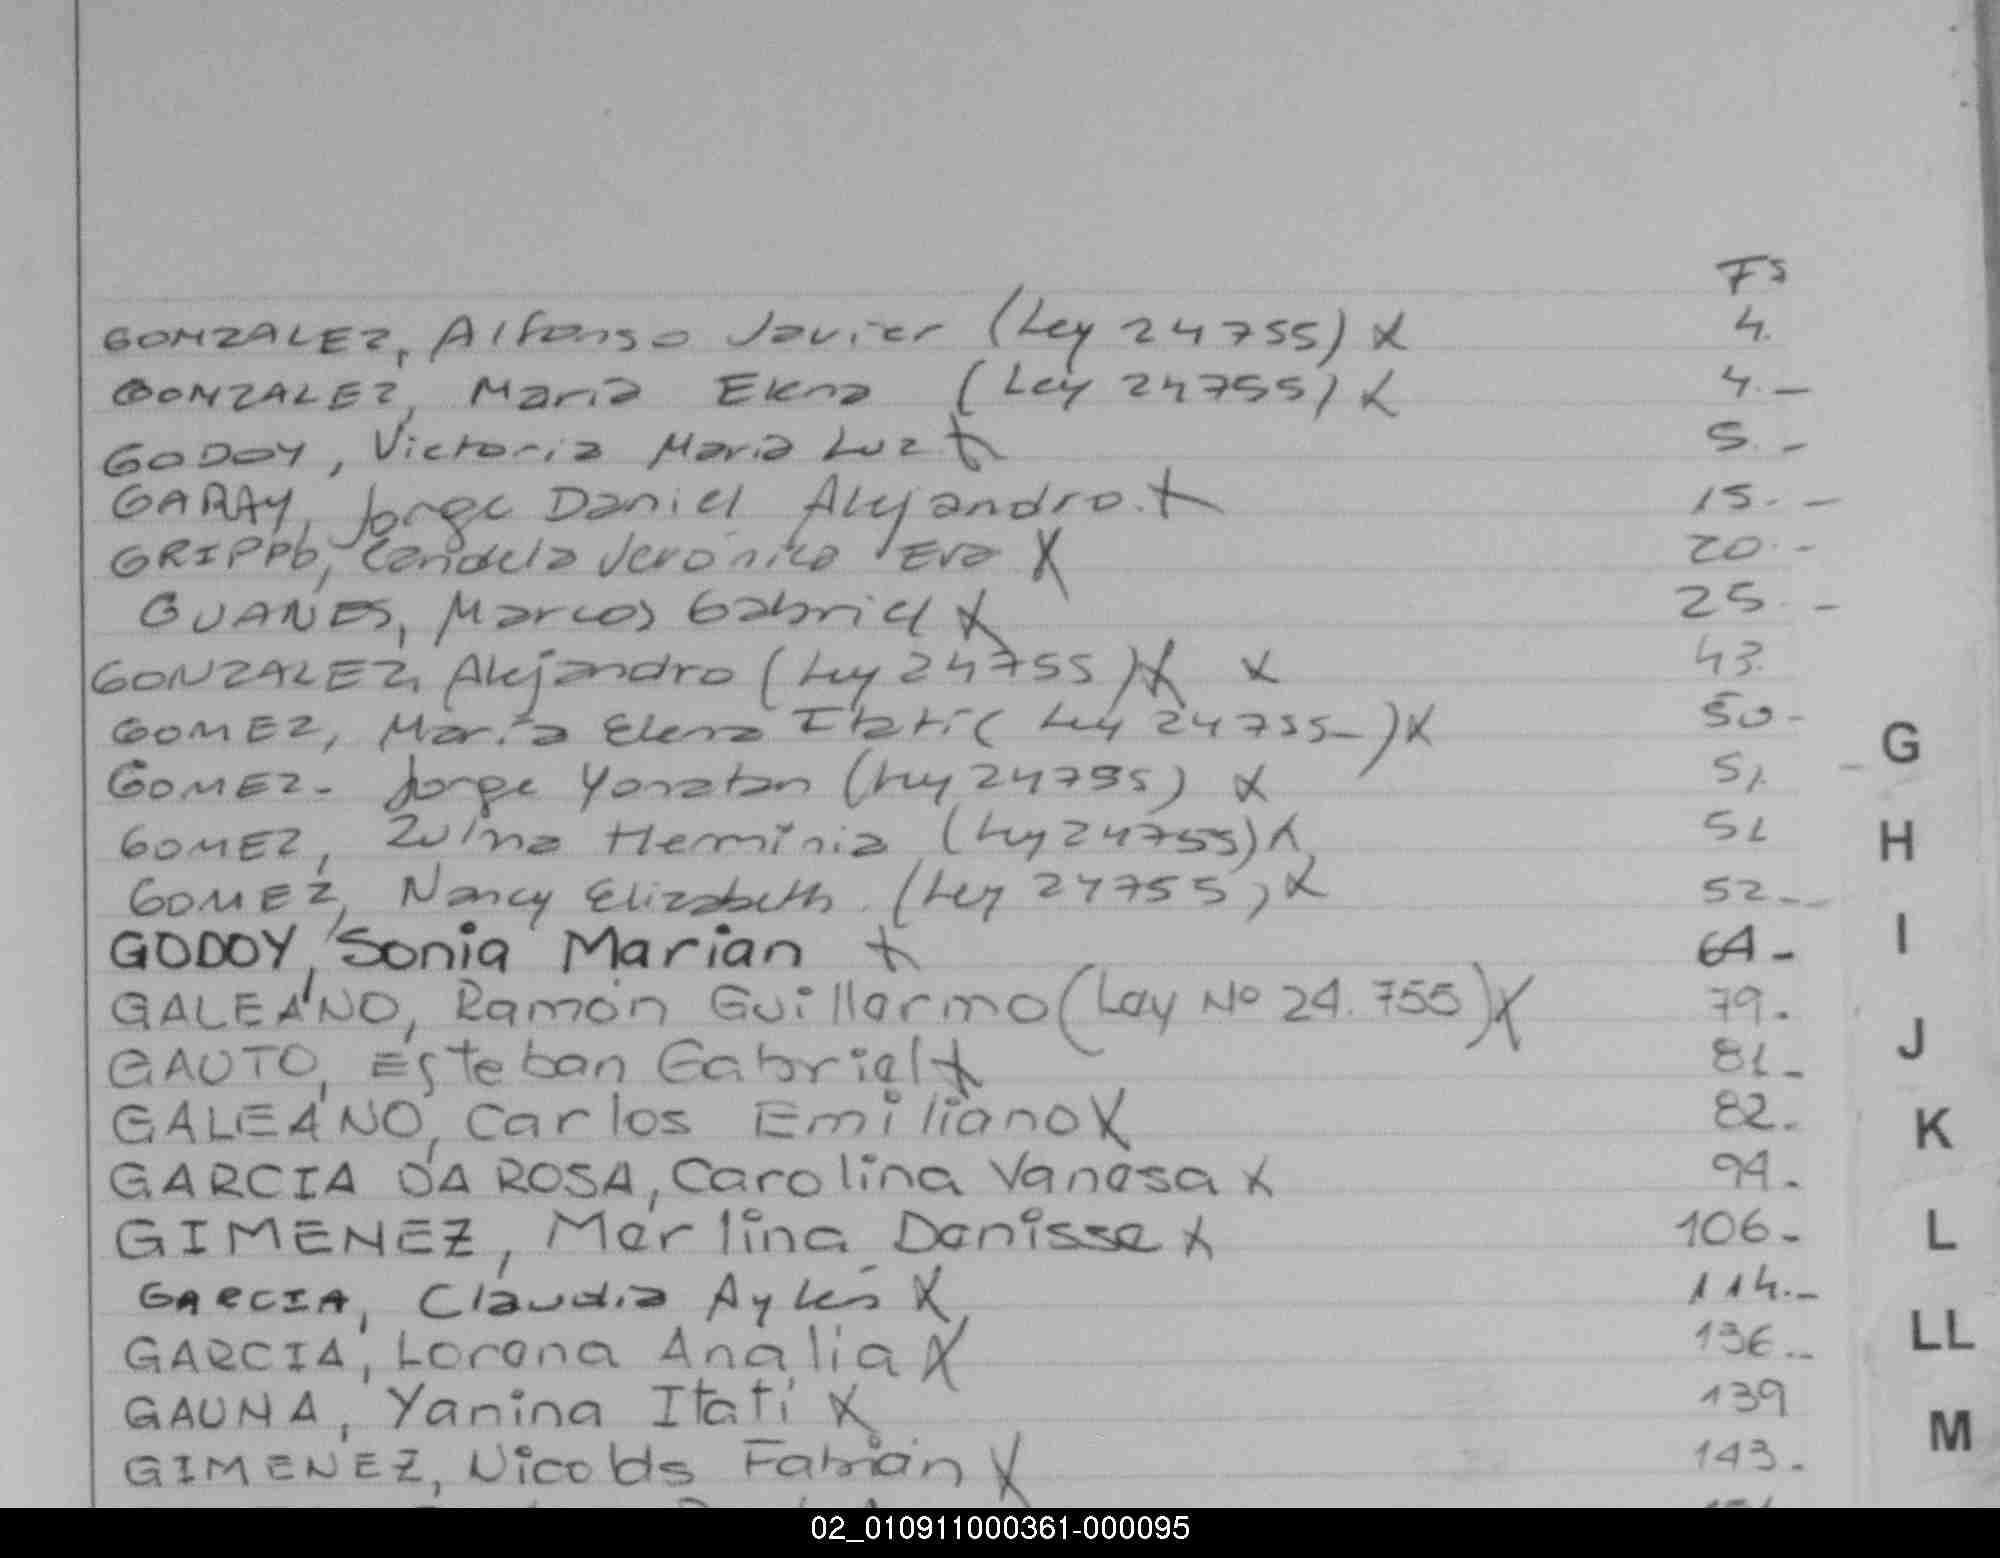 Fs
GONZALEZ, Alfonso Javier (Ley 24755) X 4.
GONZALEZ, Maria Elena (Ley 24755) X 4.-
GODOY, Victoria Maria Luz X 5.-
GARAY, Jorge Daniel Alejandro. X 15.-
GRIPPO, Candela Verónica Eva X 20.-
GUANES, Marcos Gabriel X 25.-
GONZALEZ, Alejandro (Ley 24755) X X 43.
GOMEZ, María Elena Itatí ( Ley 24755-) X 50-
GOMEZ- Jorge Yonatan (Ley 24755) X 51.
GOMEZ, Zulma Herminia (Ley 24755) X 51
GOMEZ, Nancy Elizabeth (Ley 24755) X 52--
GODOY, Sonia Marian X 64-
GALEANO, Ramón Guillermo (Ley Nº 24.755) X 79.
GAUTO, Esteban Gabriel X 81-
GALEANO, Carlos Emiliano X 82.
GARCIA DA ROSA, Carolina Vanesa X 94.
GIMENEZ, Merlina Denisse X 106-
GARCIA, Claudia Aylén X 114.-
GARCIA, Lorena Analia X 136..
GAUNA, Yanina Itatí X 139
GIMENEZ, Nicolás Fabián X 143.
G
H
I
J
K
L
LL
M
02_010911000361-000095